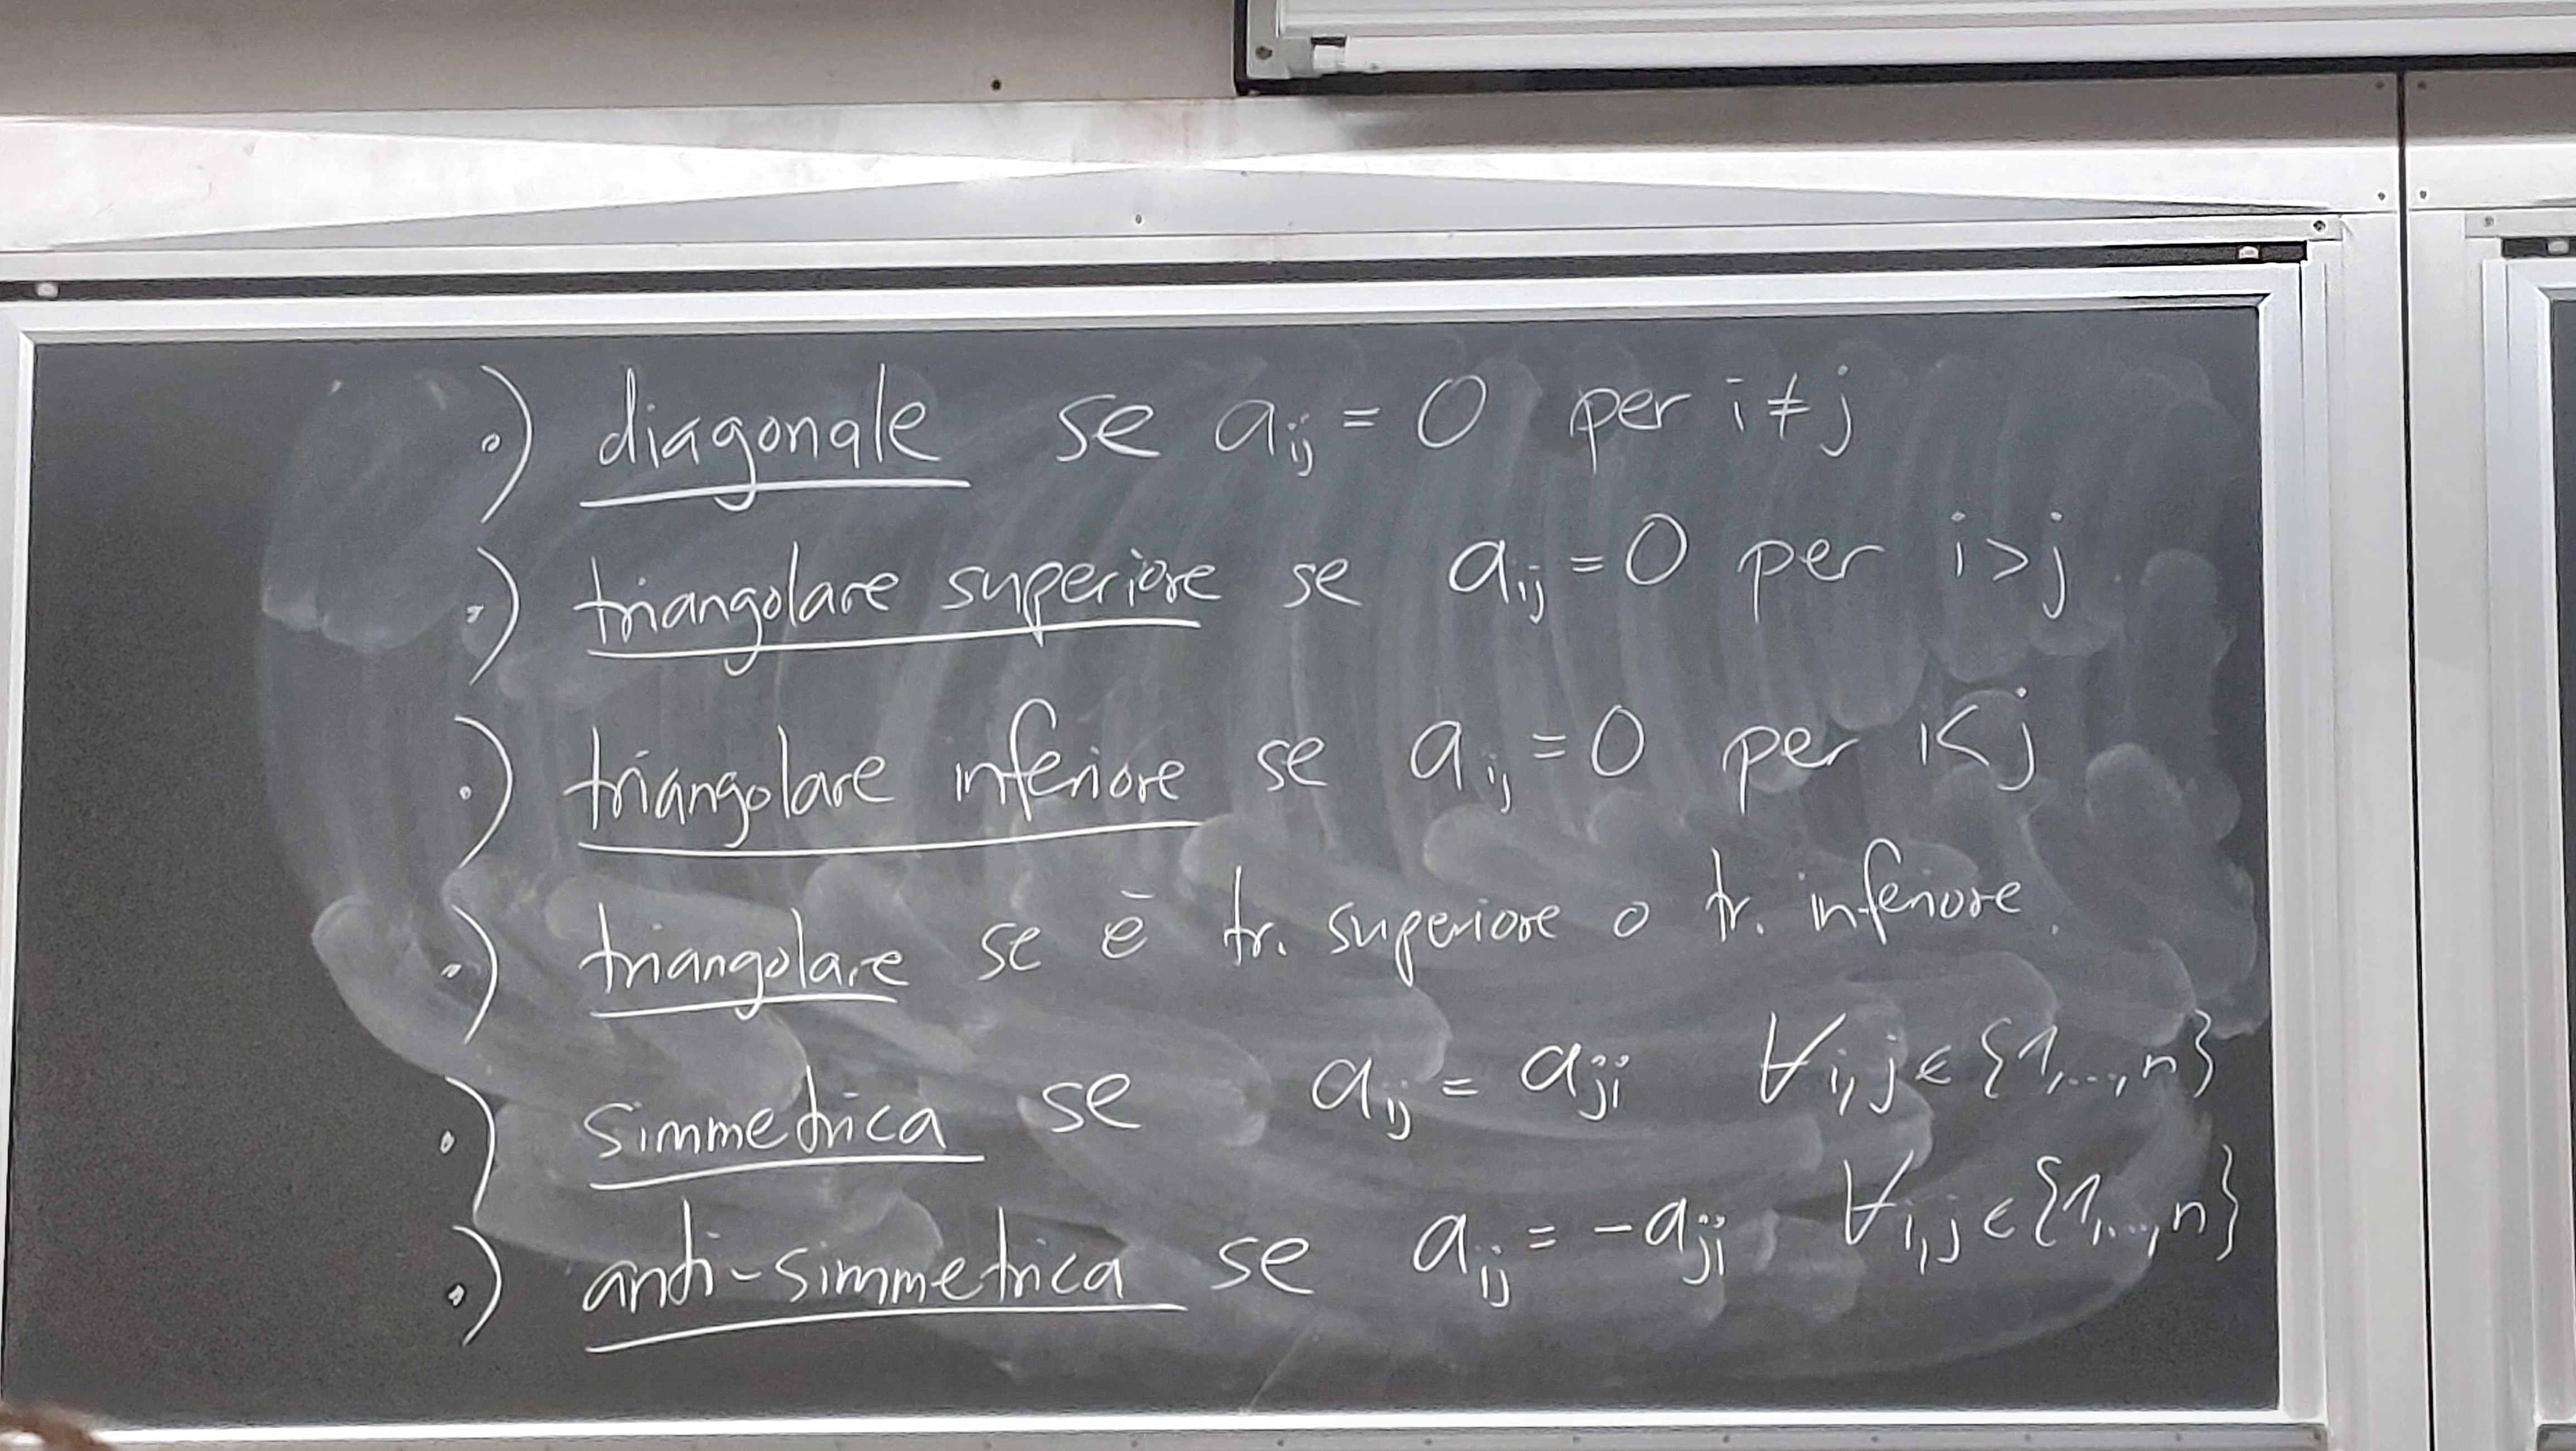 •) diagonale se aᵢⱼ = 0 per i ≠ j
•) triangolare superiore se aᵢⱼ = 0 per i > j
•) triangolare inferiore se aᵢⱼ = 0 per i < j
•) triangolare se è tr. superiore o tr. inferiore.
•) simmetrica se aᵢⱼ = aⱼᵢ ∀i,j ∈ {1,...,n}
•) anti-simmetrica se aᵢⱼ = -aⱼᵢ ∀i,j ∈ {1,...,n}